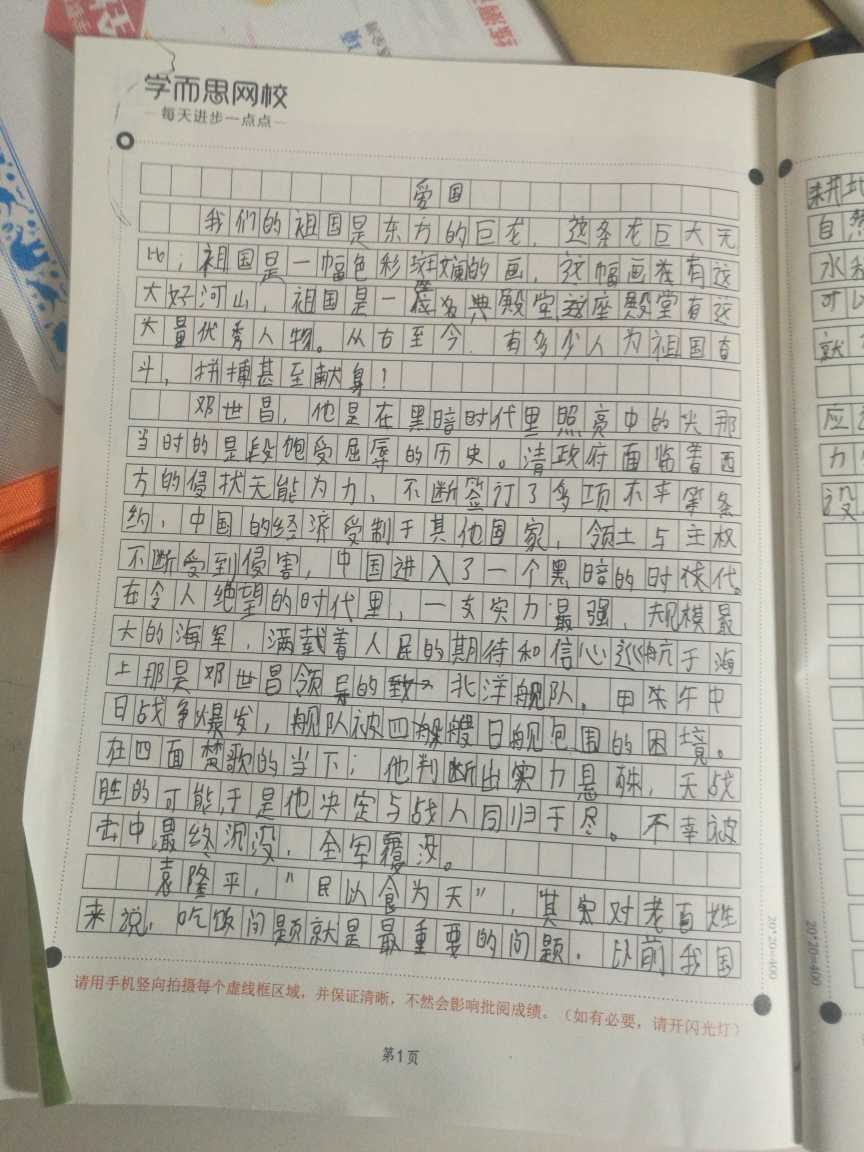 学而思网校
每天进步一点点
爱国
我们的祖国是东方的巨龙，这条龙巨大无
比；祖国是一幅色彩斑斓的画，这幅画在有这
大好河山，祖国是一座名典殿堂这座殿堂有这
大量优秀人物。从古至今，有多少人为祖国奋
斗，拼搏甚至献身！
邓世昌，他是在黑暗时代里照亮中的光那
当时的是段饱受屈辱的历史。清政府面临着西
方的侵扰无能为力、不断签订了多项不平等条
约，中国的经济受制于其他国家，领土与主权
不断受到侵害，中国进入了一个黑暗的时代。
在令人绝望的时代里，一支实力最强，规模最
大的海军，满载着人民的期待和信心巡航于海
上那是邓世昌领导的致 北洋舰队。甲午中
日战争爆发，舰队被四艘日舰包围的困境。
在四面楚歌的当下；他判断出实力悬殊，无战
胜的可能，于是他决定与战人同归于尽。不幸被
击中最终沉没，全军覆没。
袁隆平，“民以食为天”，其实对老百姓
来说，吃饭问题就是最重要的问题。以前我国
请用手机竖向拍摄每个虚线框区域，并保证清晰，不然会影响批阅成绩。（如有必要，请开闪光灯）
第1页
20*20=400
20*20=400
耕地
自然
水和
可以
就
应
力
没